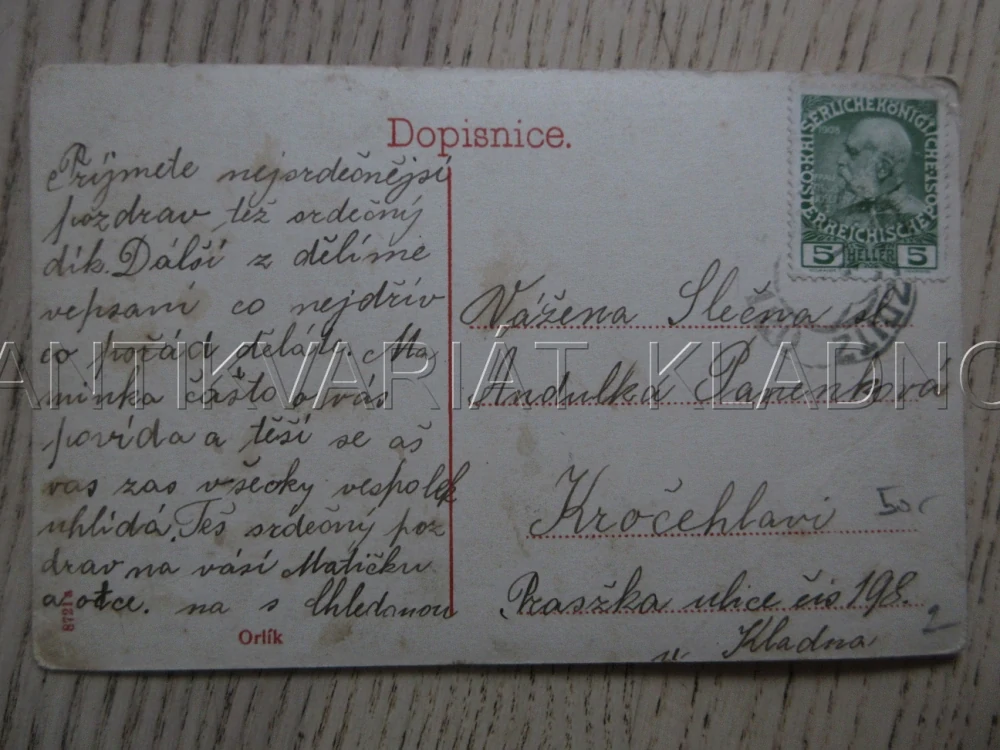 Dopisnice.
Přijmete nejsrdečnějsi
pozdrav též srdečný
dik. Dálší z dělíme
vepsaní co nejdřív
co pořád děláte. Ma
minka často o vás
povída a těší se aš
vas zas všecky vespolek
uhlidá. Teš srdečný poz
drav na váší Matičku
a otce. na s hledanou
8721a
Orlík
Vážena Slečna sl.
Andulka
Kročehlavi
Prasžka ulice čis 198.
u Kladna
50,-
2
KAISERLICHE KÖNIGLICHE ÖSTERREICHISCHE POST
1908
5 HELLER 5
ANTIKVARIÁT KLADNO